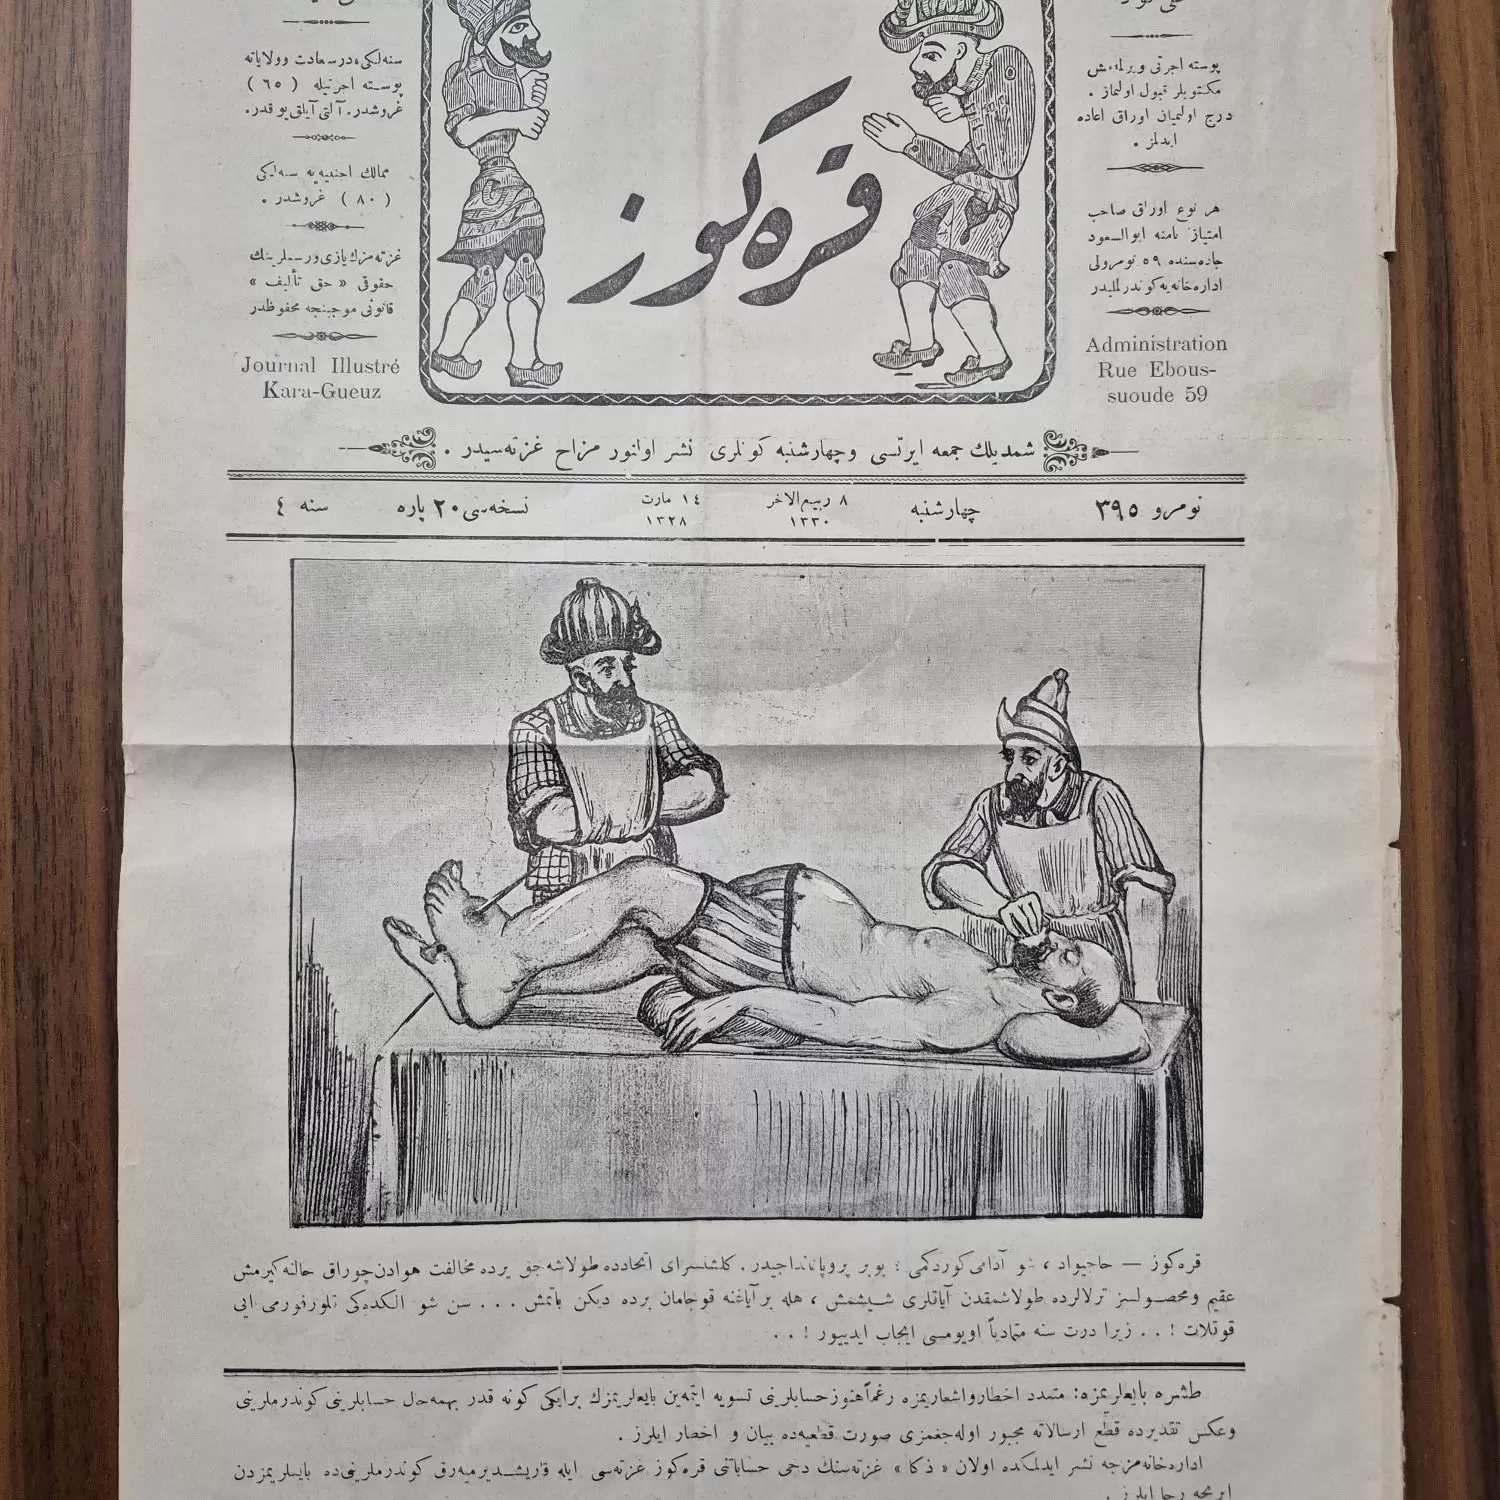 پوسته اجرتی ویرلمه‌مش
مکتوبلر قبول اولنماز .
درج اولنمیان اوراق اعاده
ایدلمز .
هر نوع اوراق صاحب
امتیاز نامنه ابوالسعود
جاده‌سنده ٥٩ نومرولی
اداره‌خانه‌یه کوندرلملیدر
Administration
Rue Ebous-
suoude 59
قره‌کوز
سنه‌لکی درسعادت وولایاته
پوسته اجرتیله ( ٦٥ )
غروشدر. آلتی آیلق یوقدر.
ممالك اجنبیه‌یه سنه‌لکی
( ٨٠ ) غروشدر .
غزته‌مزك یازی و رسملرینك
حقوقی « حق تألیف »
قانونی موجبنجه محفوظدر
Journal Illustré
Kara-Gueuz
شمدیلك جمعه ایرتسی وچهارشنبه کونلری نشر اولنور مزاح غزته‌سیدر .
نومرو ٣٩٥ چهارشنبه ٨ ربیع‌الاخر ١٣٣٠ ١٤ مارت ١٣٢٨ نسخه‌سی ٢٠ پاره سنه ٤
قره‌کوز — حاجیواد ، شو آدامی کوردکمی ؛ بو بر پروپاغانداجیدر . کلشنسرای اتحادده طولاشه‌جق یرده مخالفت هوادن چوراق حالنه کیرمش
عقیم ومحصولسز ترلالرده طولاشمقدن آیاقلری شیشمش ، هله بر آیاغنه قوجامان برده دیکن باتمش . . . سن شو الکده‌کی قلوروفورمی ایی
قوقلات ! . . زیرا درت سنه متمادیاً اویومسی ایجاب ایدییور ! . .
طشره بایعلریمزه: متعدد اخطار واشعاریمزه رغماً هنوز حسابلرینی تسویه ایتمه‌ین بایعلریمزك برایکی کونه قدر بهمه‌حال حسابلرینی کوندرملرینی
وعکس تقدیرده قطع ارسالاته مجبور اوله‌جغمزی صورت قطعیه‌ده بیان و اخطار ایلرز .
اداره‌خانه‌مزجه نشر ایدلمکده اولان « ذکا » غزته‌سنك دخی حساباتنی قره‌کوز غزته‌سی ایله قاریشدیرمیه‌رق کوندرملرینی‌ده بایعلریمزدن
ایریجه رجا ایلرز .